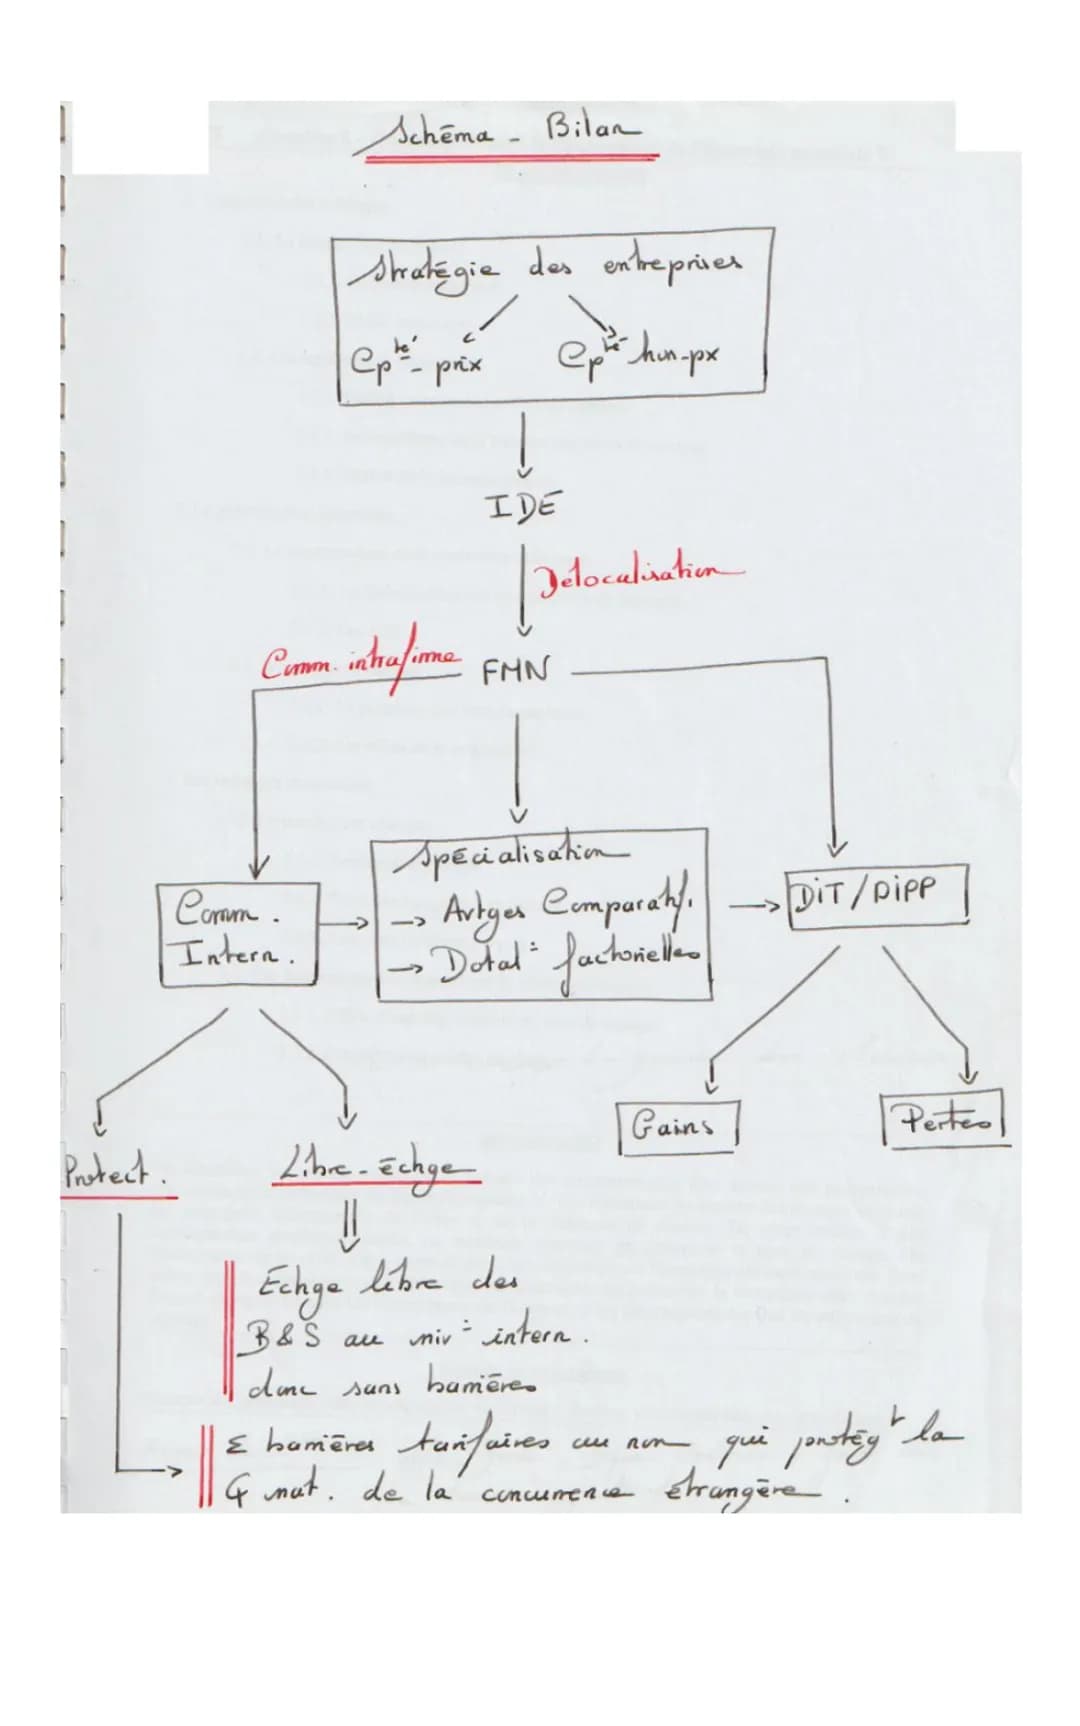 Schéma - Bilan
Stratégie des entreprises
Cpté - prix
Cpté hors-px
IDE
Délocalisation
Comm. intrafirme
FMN
Spécialisation
→ Avtges Comparatif.
→ Dotat° factorielles
Comm.
Intern.
DiT / DiPP
Gains
Pertes
Protect.
Libre-échge
Echge libre des
B & S au niv= intern.
donc sans barrières
Σ barrières tarifaires ou non qui protègt la
nat. de la concurrence étrangère.